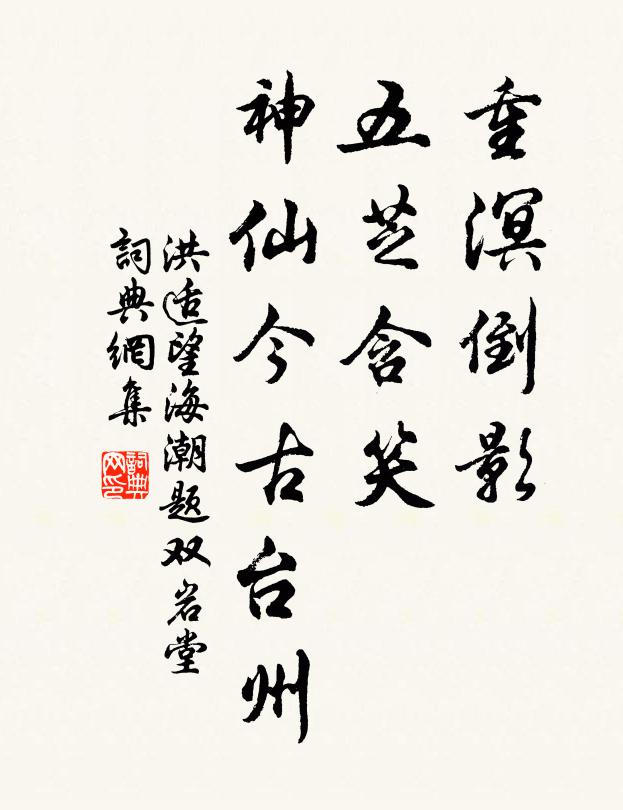 重溟倒影
五芝含笑
神仙今古台州
洪适望海潮题双岩堂
詞典網集
詞典网印